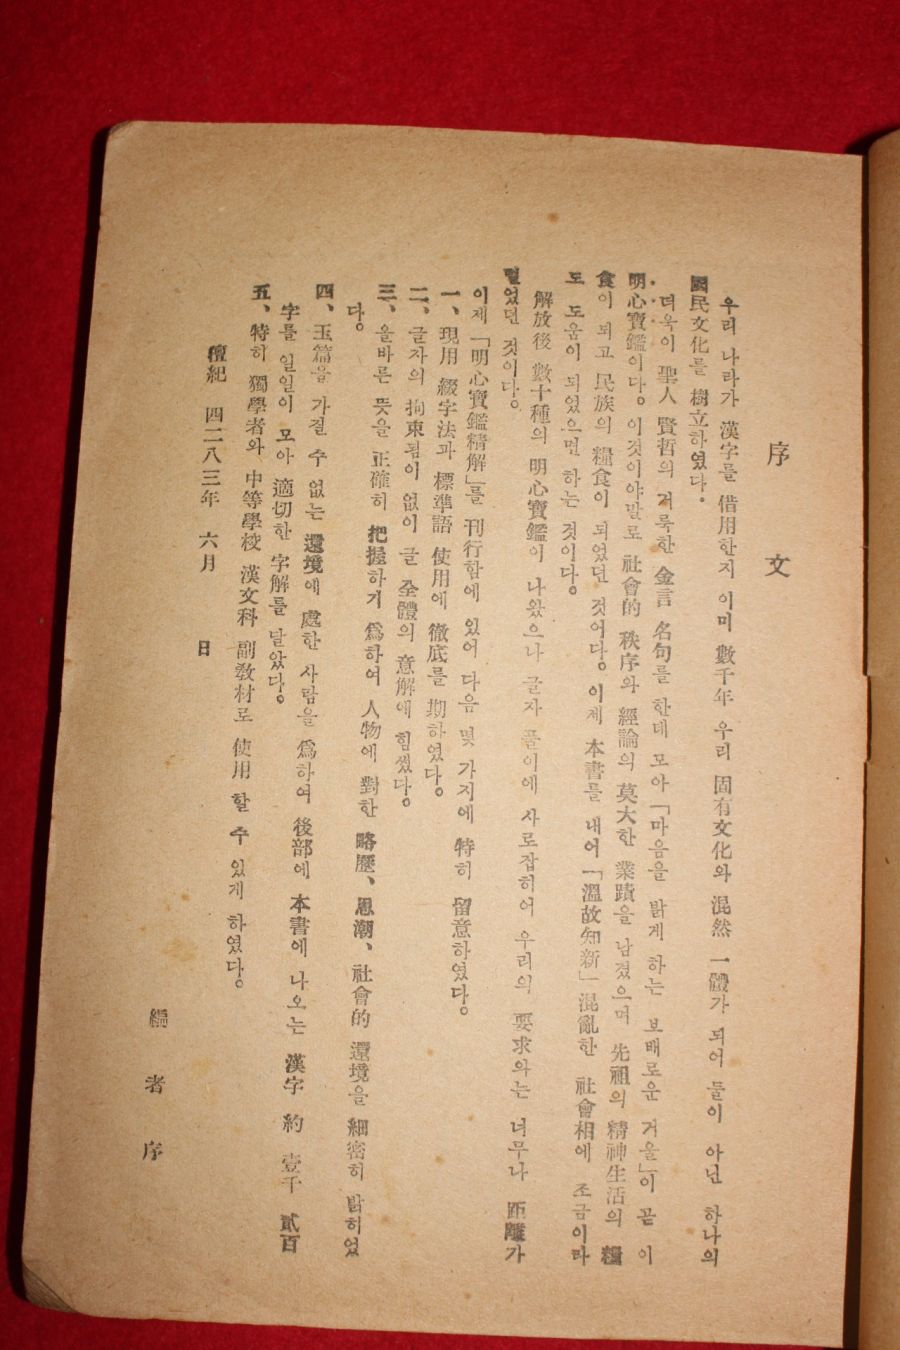 序 文
우리 나라가 漢字를 借用한지 이미 數千年 우리 固有文化와 混然 一體가 되어 둘이 아닌 하나의
國民文化를 樹立하였다.
더욱이 聖人 賢哲의 거룩한 金言 名句를 한데 모아 「마음을 밝게 하는 보배로운 거울」이 곧 이
明心寶鑑이다。이것이야말로 社會的 秩序와 經論의 莫大한 業蹟을 남겼으며 先祖의 精神生活의 糧
食이 되고 民族의 糧食이 되었던 것어다。이제 本書를 내어 「溫故知新」 混亂한 社會相에 조금이라
도 도움이 되었으면 하는 것이다。
解放後 數十種의 明心寶鑑이 나왔으나 글자 풀이에 사로잡히어 우리의 要求와는 너무나 距離가
멀었던 것이다。
이제 「明心寶鑑精解」를 刊行함에 있어 다음 몇 가지에 特히 留意하였다。
一、現用 綴字法과 標準語 使用에 徹底를 期하였다。
二、글자의 拘束됨이 없이 글 全體의 意解에 힘썼다。
三、올바른 뜻을 正確히 把握하기 爲하여 人物에 對한 略歷、思潮、社會的 還境을 細密히 밝히었
다。
四、玉篇을 가질 수 없는 還境에 處한 사람을 爲하여 後部에 本書에 나오는 漢字 約 壹千 貳百
字를 일일이 모아 適切한 字解를 달았다。
五、特히 獨學者와 中等學校 漢文科 副敎材로 使用 할 수 있게 하였다。
檀紀 四二八三年 六月 日
編 者 序